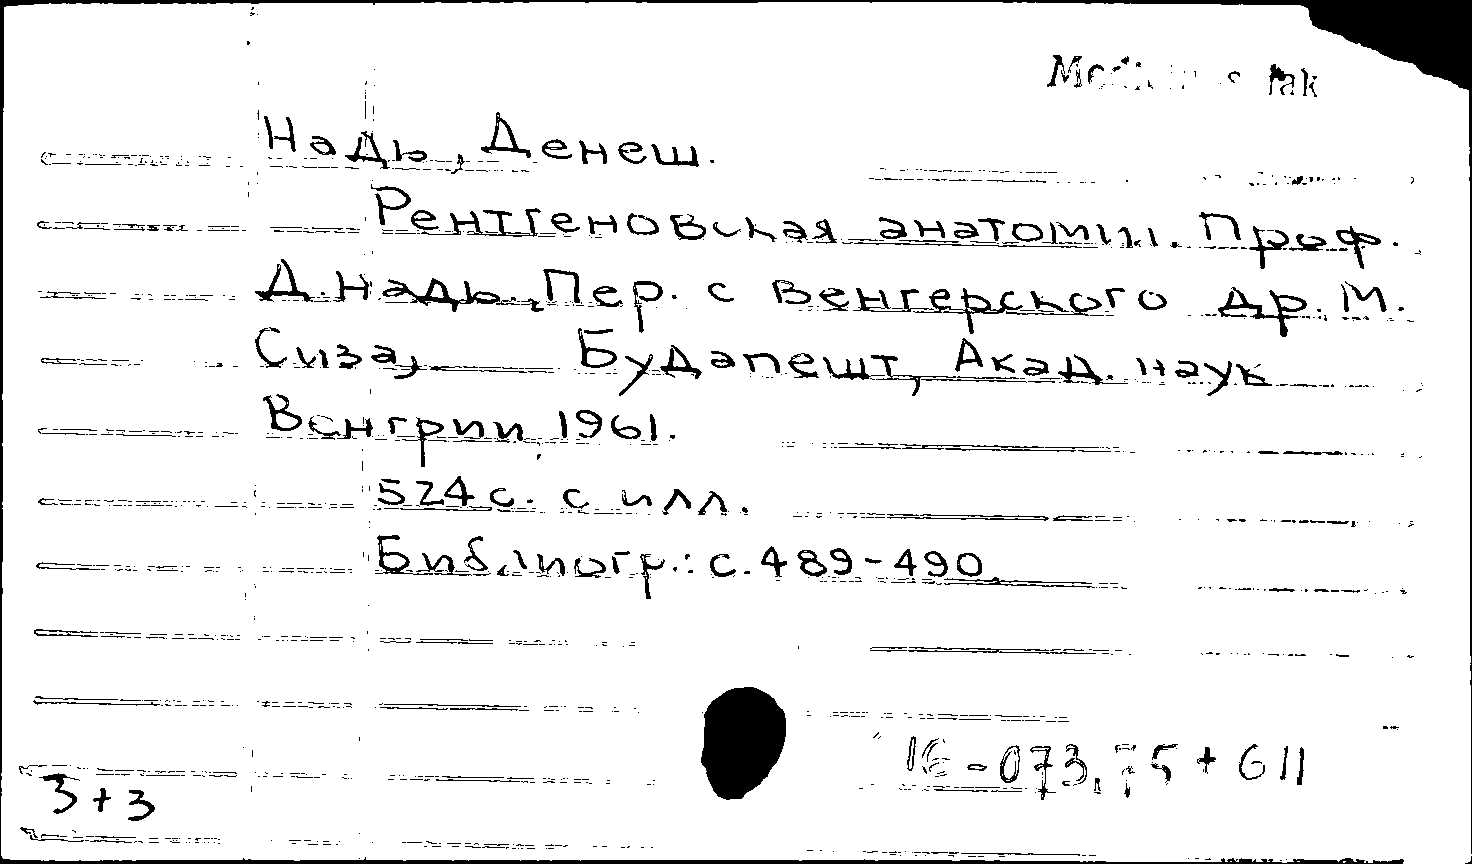 Надь, Денеш.
Рентгеновская анатомия. Проф.
Д. Надь. Пер. с венгерского др. М.
Сиза, Будапешт, Акад. наук
Венгрии, 1961.
524 с. с илл.
Библиогр.: с. 489-490.
16-073.75+611
3+3